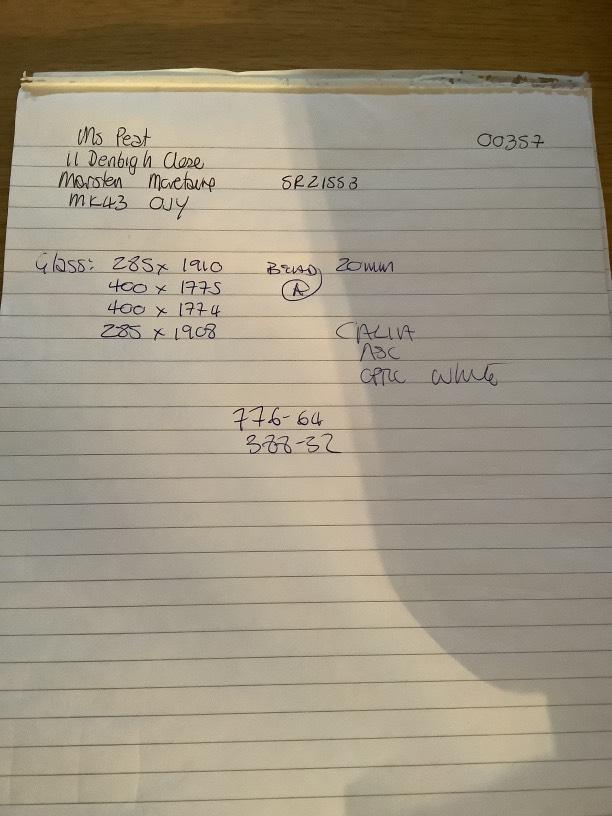 Ms Peat 00357
11 Denbigh Close
Marsten Moretaine SR21553
MK43 0JY
Glass: 285 x 1910 BEAD 20mm
400 x 1775 A
400 x 1774
285 x 1908 CALIA
ASC
OPTIC White
776-64
388-32